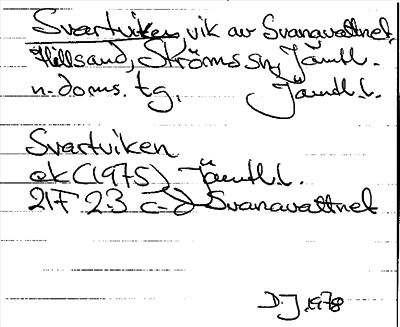 Svartviken, vik av Svanavattnet,
Hillsand, Ströms sn, Jämtl.
n. doms. tg. Jämtl. l.
Svartviken
ek (1975) Jämtl. l.
21F 23 c-d Svanavattnet
D.J. 1978